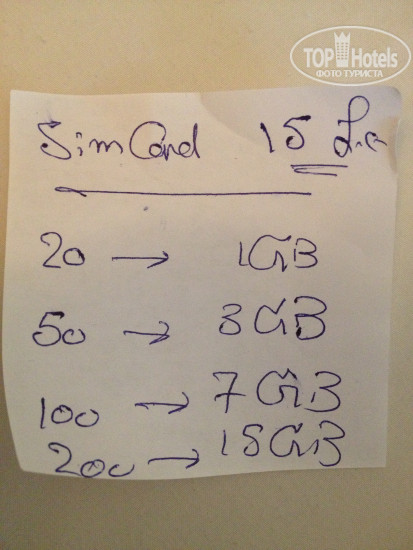 TOP Hotels
ФОТО ТУРИСТА
Sim Card 15 L.e
20 → 1GB
50 → 3GB
100 → 7GB
200 → 15GB